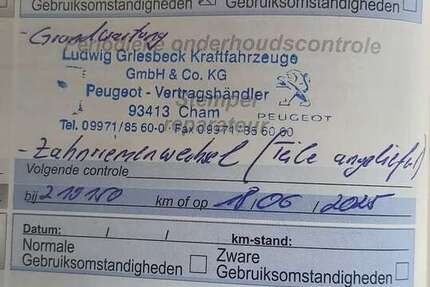 Gebruiksomstandigheden
Gebruiksomstandigheden
- Grundwartung
Periodieke onderhoudscontrole
Ludwig Griesbeck Kraftfahrzeuge
GmbH & Co. KG
Peugeot - Vertragshändler
Stempel
93413 Cham
PEUGEOT
Tel. 09971/8560-0 Fax 09971-856060
reparateur
- Zahnriemenwechsel (Teile angeliefert)
Volgende controle
bij 219150 km of op 18/06/2025
Datum: / / km-stand:
Normale Zware
Gebruiksomstandigheden Gebruiksomstandigheden